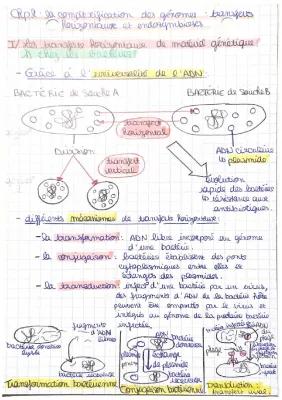 CHp2: la complexification des génomes: transferts
horizontaux et endosymbioses
I/ Les transferts horizontaux de matériel génétique
A chez les bactéries
- Grâce à l'universalité de l'ADN:
BACTÉRIE de Souche A
BACTÉRIE de Souche B
transfert
horizontal
Division
transfert
vertical
ADN circulaire
plasmide
évolution
rapide des bactéries
résistance aux
antibiotiques.
- différents mécanismes de transferts horizontaux:
- la transformation: ADN libre incorporé au génome
d'une bactérie.
- la conjugaison: bactéries établissent des ponts
cytoplasmiques entre elles et
échangent des plasmides.
- la transduction: infect° d'une bactérie par un virus,
des fragments d'ADN de la bactérie hôte
peuvent être emportés par le virus et
intégrés au génome de la prochaine bactérie
infectée.
fragments
d'ADN
libres
bactérie donneuse
lysée
bactérie receveuse
Transformation bactérienne
bactérie
donneuse
échange
de plasmide
bactérie
receveuse
Conjugaison bactérienne
phage
Transduction:
transfert viral